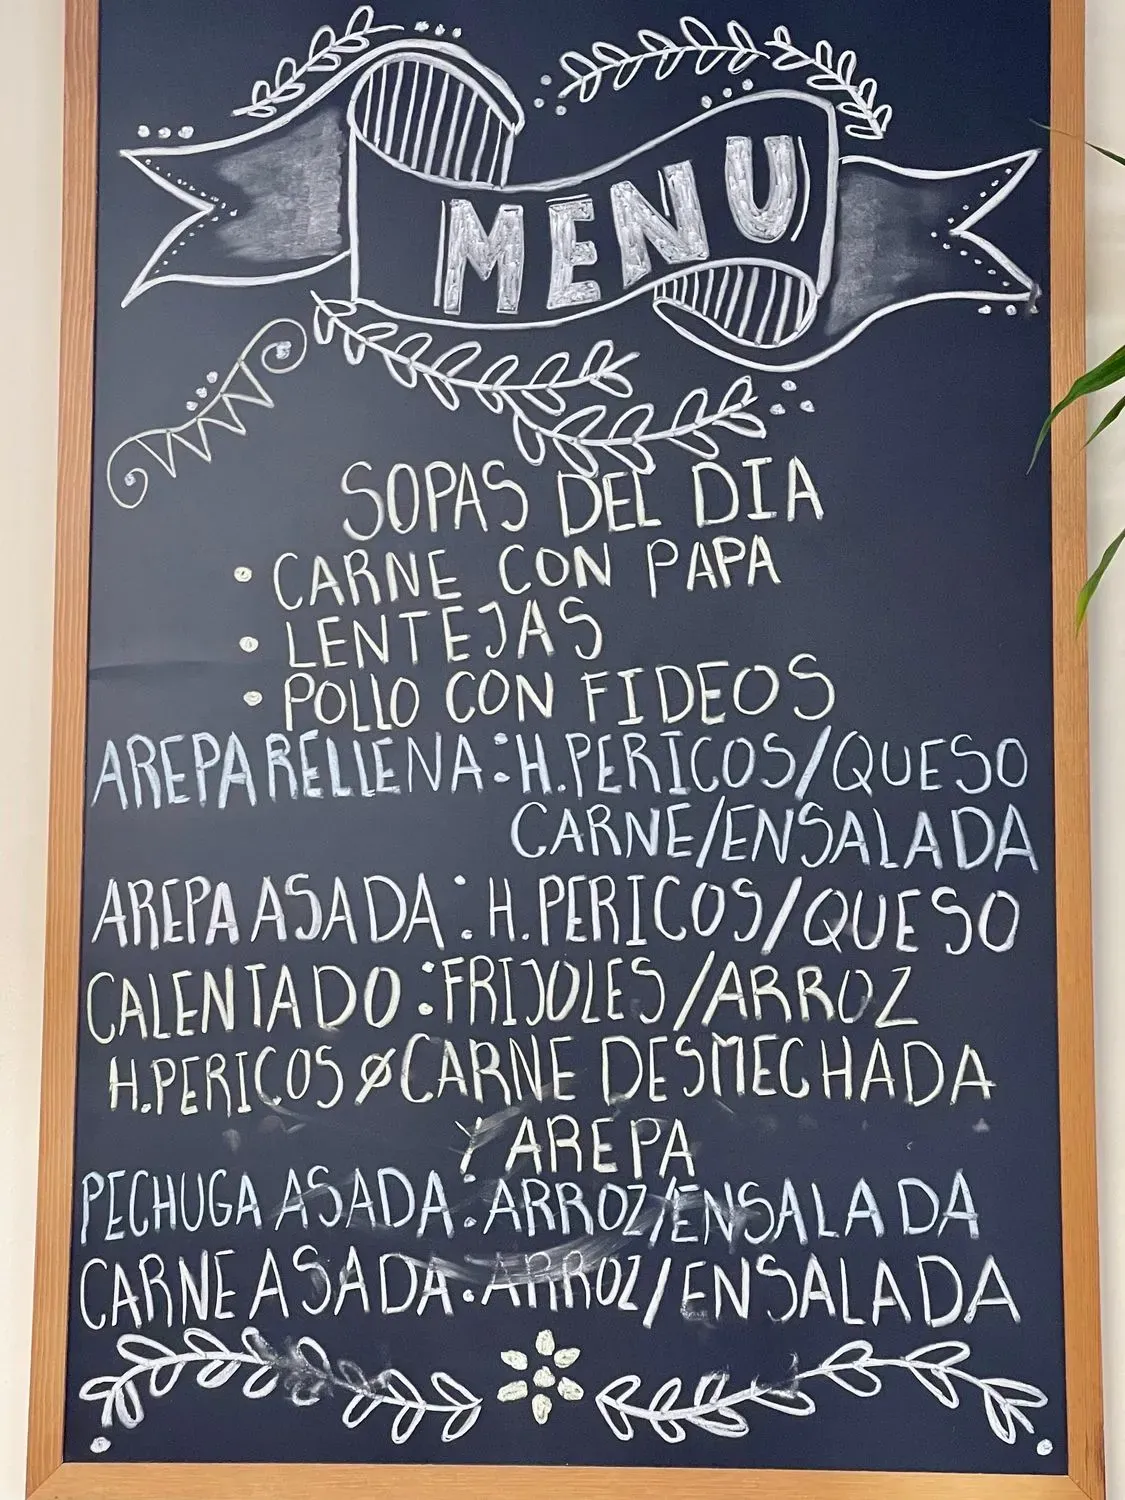 MENU
SOPAS DEL DIA
• CARNE CON PAPA
• LENTEJAS
• POLLO CON FIDEOS
AREPA RELLENA: H.PERICOS/QUESO
CARNE/ENSALADA
AREPA ASADA: H.PERICOS/QUESO
CALENTADO: FRIJOLES/ARROZ
H.PERICOS Ø CARNE DESMECHADA
Y AREPA
PECHUGA ASADA: ARROZ/ENSALADA
CARNE ASADA: ARROZ/ENSALADA